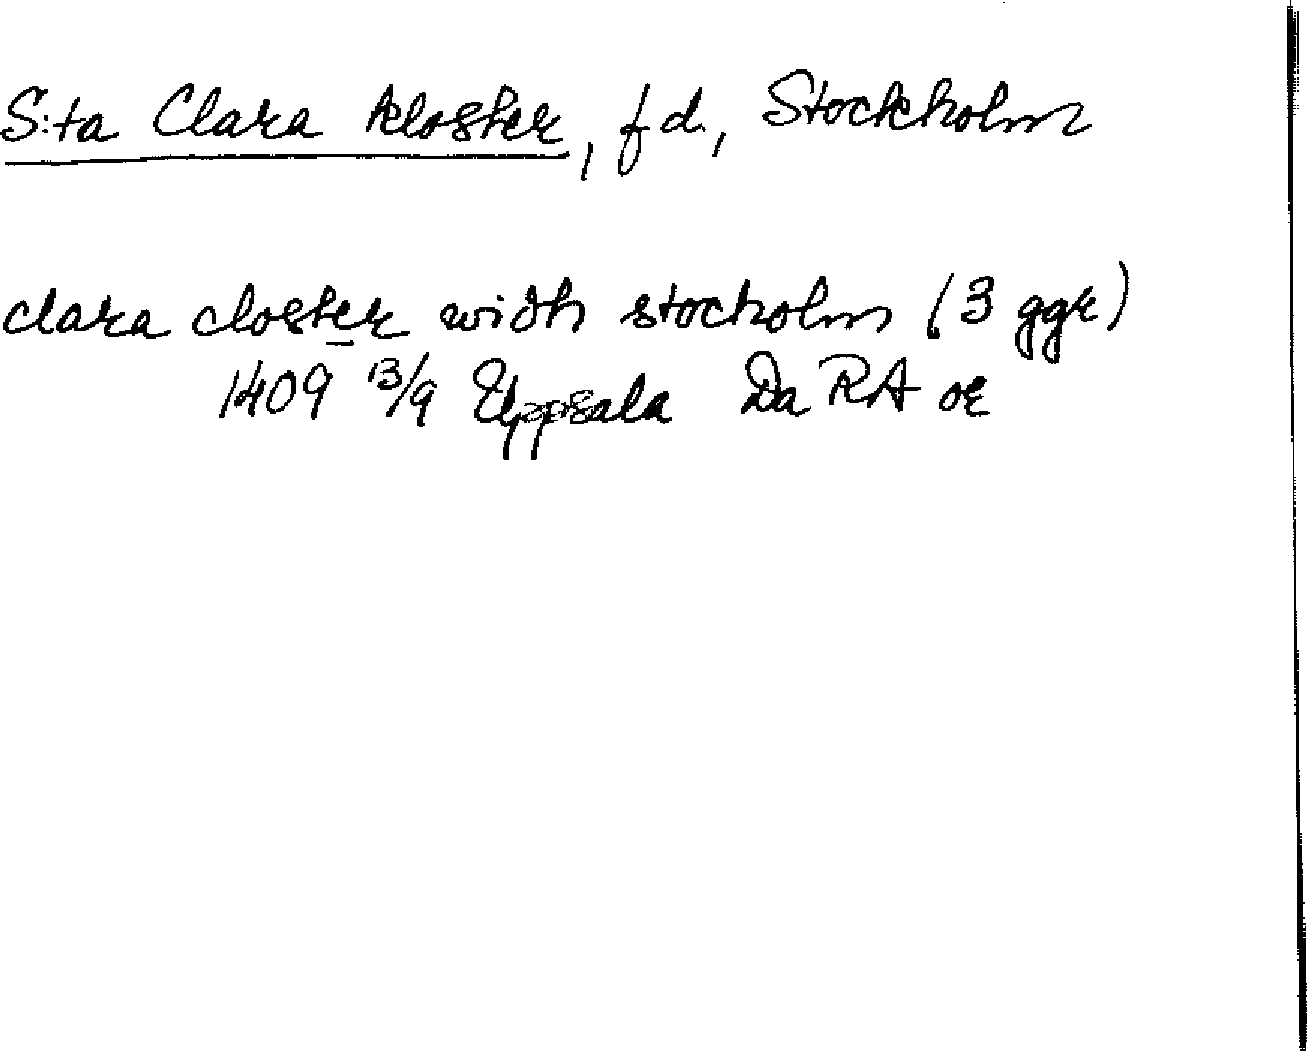 S:ta Clara kloster, f d., Stockholm
clara closter widh stocholm (3 ggr)
1409 13/9 Uppsala Da RA or